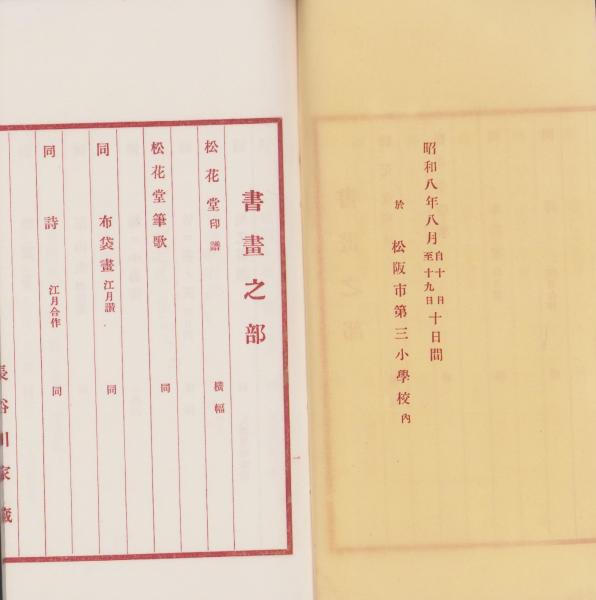 昭和八年八月自十日至十九日十日間
於 松阪市第三小學校內
書畫之部
松花堂印譜 橫幅
松花堂筆歌 同
同 布袋畫江月讃 同
同 詩 江月合作 同
長谷川家藏
一